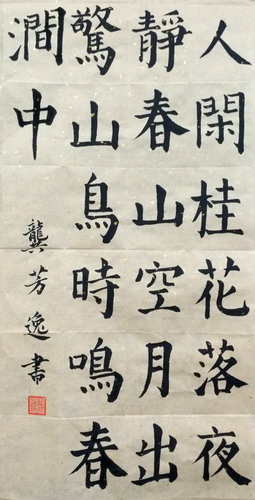 人閑桂花落夜
靜春山空月出
驚山鳥時鳴春
澗中
龔芳逸書